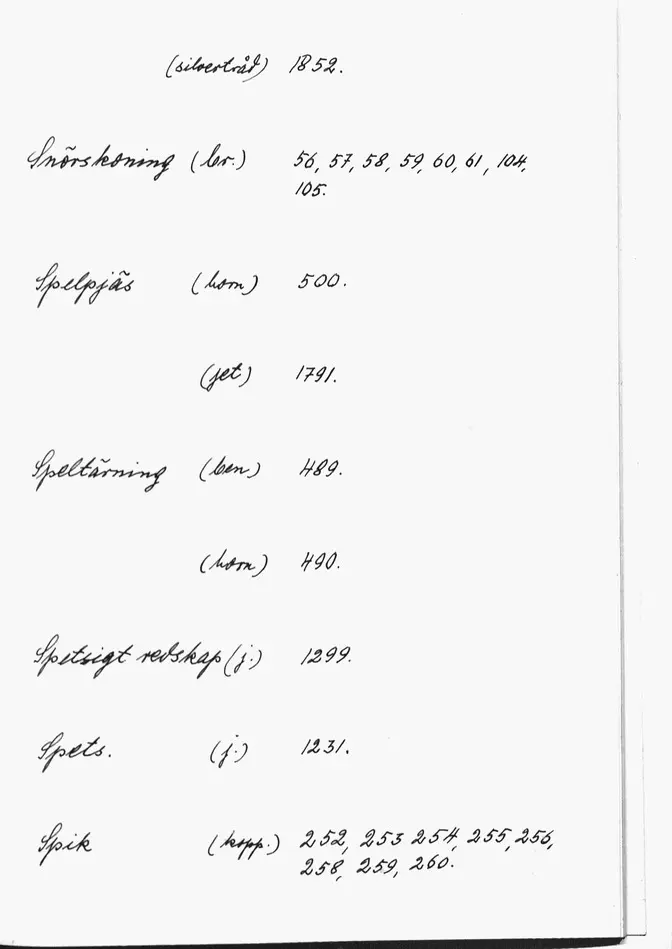 (silvertråd) 1852.
Snörskoning (br.) 56, 57, 58, 59, 60, 61, 104,
105.
Spelpjäs (horn) 500.
(jet) 1791.
Speltärning (ben) 489.
(horn) 490.
Spetsigt redskap (j.) 1299.
Spets. (j.) 1231.
Spik (kopp.) 252, 253 254, 255, 256,
258, 259, 260.